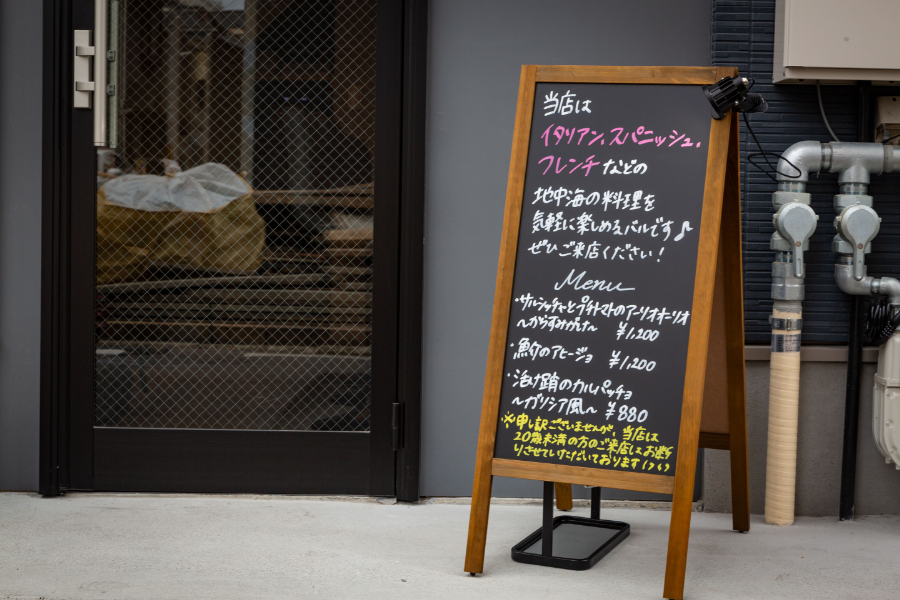 当店は
イタリアン、スパニッシュ、
フレンチなどの
地中海の料理を
気軽に楽しめるバルです♪
ぜひご来店ください!
Menu
・サルシッチャとプチトマトのアーリオオーリオ
〜からすみがけ〜 ¥1,200
・魚介のアヒージョ ¥1,200
・活け鮹のカルパッチョ
〜ガリシア風〜 ¥880
※申し訳ございませんが、当店は
20歳未満の方のご来店はお断
りさせていただいております